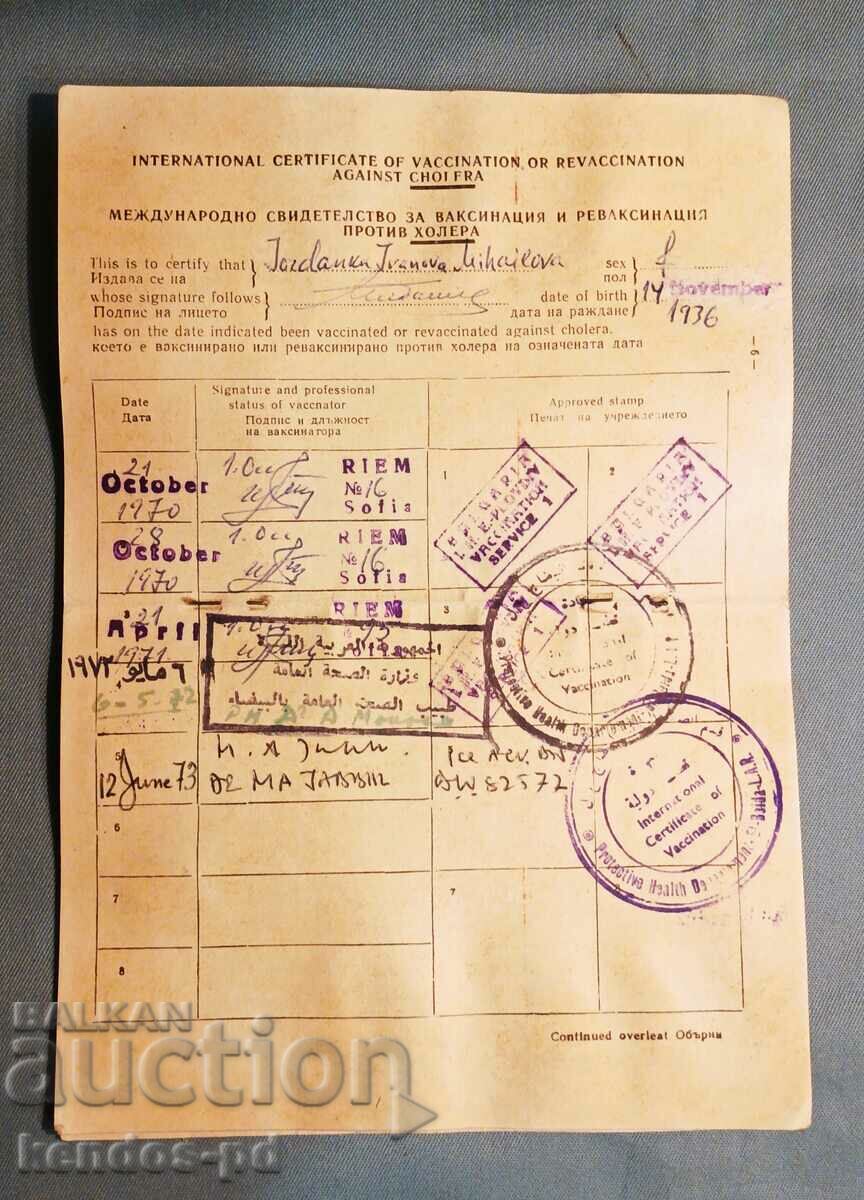 INTERNATIONAL CERTIFICATE OF VACCINATION OR REVACCINATION
AGAINST CHOLERA
МЕЖДУНАРОДНО СВИДЕТЕЛСТВО ЗА ВАКСИНАЦИЯ И РЕВАКСИНАЦИЯ
ПРОТИВ ХОЛЕРА
This is to certify that Jozdanka Ivanova Mihailova sex f
Издава се на пол
whose signature follows date of birth 14 November
Подпис на лицето дата на раждане 1936
has on the date indicated been vaccinated or revaccinated against cholera.
което е ваксинирано или реваксинирано против холера на означената дата
— 6 —
Date
Дата
Signature and professional
status of vaccnator
Подпис и длъжност
на ваксинатора
Approved stamp
Печат на учреждението
21 October 1970
RIEM
№ 16
Sofia
1
BULGARIA
VACCINATION
SERVICE 1
2
BULGARIA
SERVICE 1
28 October 1970
RIEM
№ 16
Sofia
21 April 1971
RIEM
3
٦ مايو ١٩٧٢
6-5-72
وزارة الصحة العامة
طبيب الصحة العامة بالبيضاء
International
Certificate of
Vaccination
5
12 June 73
DW 82572
International
Certificate of
Vaccination
Protective Health
6
7
7
8
Continued overleat Обърни
BALKAN
auction
kendos-pd